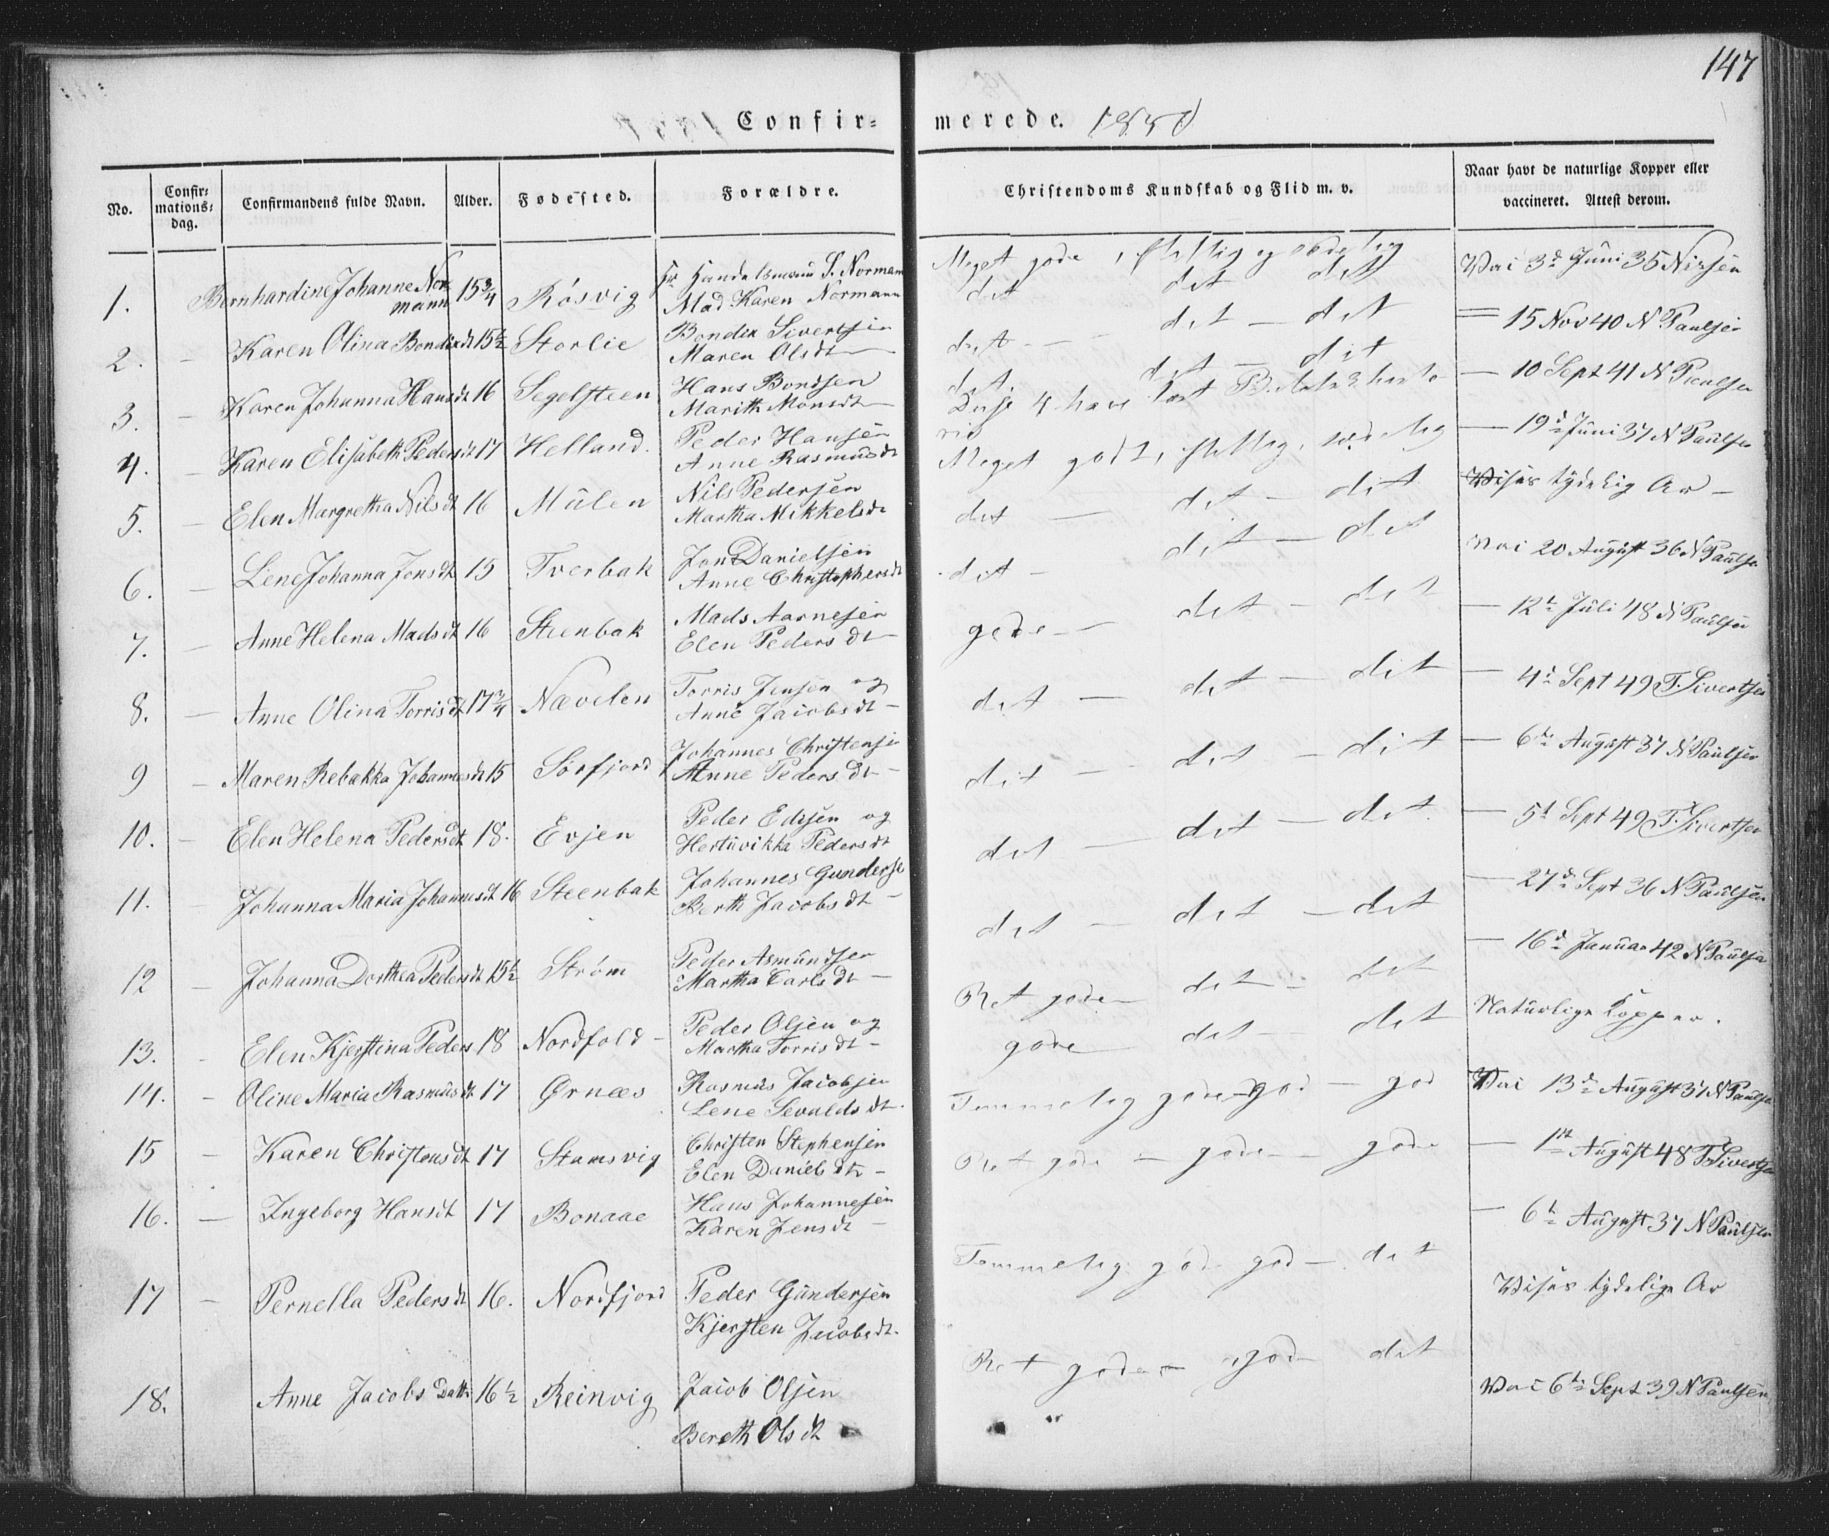 147
Confir= merede. 1850
No. Confir= mations= dag. Confirmandens fulde Navn. Alder. Fødested. Forældre. Christendoms Kundskab og Flid m. v. Naar havt de naturlige Kopper eller vaccineret. Attest derom.
1. Bernhardine Johanne Nor mann 15 3/4 Røsvig Hr Handelsmand S. Normann Mad Karen Normann Meget gode, flittig og sædelig Vac 3d Juni 35
det det det
2. — Karen Olina Bondixdt 15 1/2 Storlie Bondix Sivertsen Maren Olsdt det — det — det = 15 Nov 40 N Paulsen
3. — Karen Johanna Hansdt 16 Segelsteen Hans Bondsen Marith Monsdt det. det — det — 10 Sept 41 N Paulsen
Disse 4 have læst
4. — Karen Elisabeth Pedersdt 17 Helland. Peder Hansen Anne Rasmusdt Meget godt, flittig, sædelig — 19d Juni 37 N Paulsen
5. — Elen Margretha Nilsdt 16 Mûlen Nils Pedersen Martha Mikkelsdt det — det — det Vises tydelig Ar —
6. — Line Johanna Jonsdt 15 Tverbak Jon Danielsen Anne Christophersdt det — det — det Vac 20 August 36 N Paulsen
7. — Anne Helena Madsdt 16 Steenbak Mads Aarnesen Elen Pedersdt gode — det — det — 12t Juli 48 N Paulsen
8. — Anne Olina Torrisdt 17 3/4 Nævelen Torris Jensen og Anne Jacobsdt — det — det — det — 4d Sept 49 T. Sivertsen
9 — Maren Rebakka Johannesdt 15 Sørfjord Johannes Christensen Anne Pedersdt — det — det — det — 6te August 37 N Paulsen
10. — Elen Helena Pedersdt 18. Evjen Peder Edisen og Hertuvikka Pedersdt det — det — det — 5t Sept 49 T. Sivertsen
11. — Johanna Maria Johannesdt 16 Steenbak Johannes Gunderse Berth Jacobsdt — det — det — det — 27d Sept 36 N Paulsen
12 — Johanna Dorthea Pedersdt 15 1/2 Strøm Peder Asmundsen Martha Carlsdt — Ret gode — det — det — 16d Januar 42 N Paulsen
13. — Elen Kjerstina Peders 18 Nordfold — Peder Olsen og Martha Torrisdt — gode det — det Naturlige Kopper.
14. — Oline Maria Rasmusdt 17 Ørnæs Rasmus Jacobsen Lene Sevaldsdt. Temmelig gode — god — god Vac 13d August 37 N Paulsen
15 — Karen Christensdt 17 Stamsvig Christen Stephensen Elen Danielsdtr — Ret gode — gode — gode — 1st August 48 T Sivertsen
16. — Ingeborg Hansdt 17 Bonaae Hans Johannesen Karen Jensdt — Temmelig god god — det — 6t August 37 N Paulsen
17 — Pernella Pedersdt 16. Nordfjord Peder Gundersen Kjersten Jacobsdt. Vises tydelige Ar
18. Anne Jacobs Datt 16 1/2 Reinvig Jacob Olsen Bereth Olsdt Ret gode — gode det Vac 6te Sept 39 N Paulsen